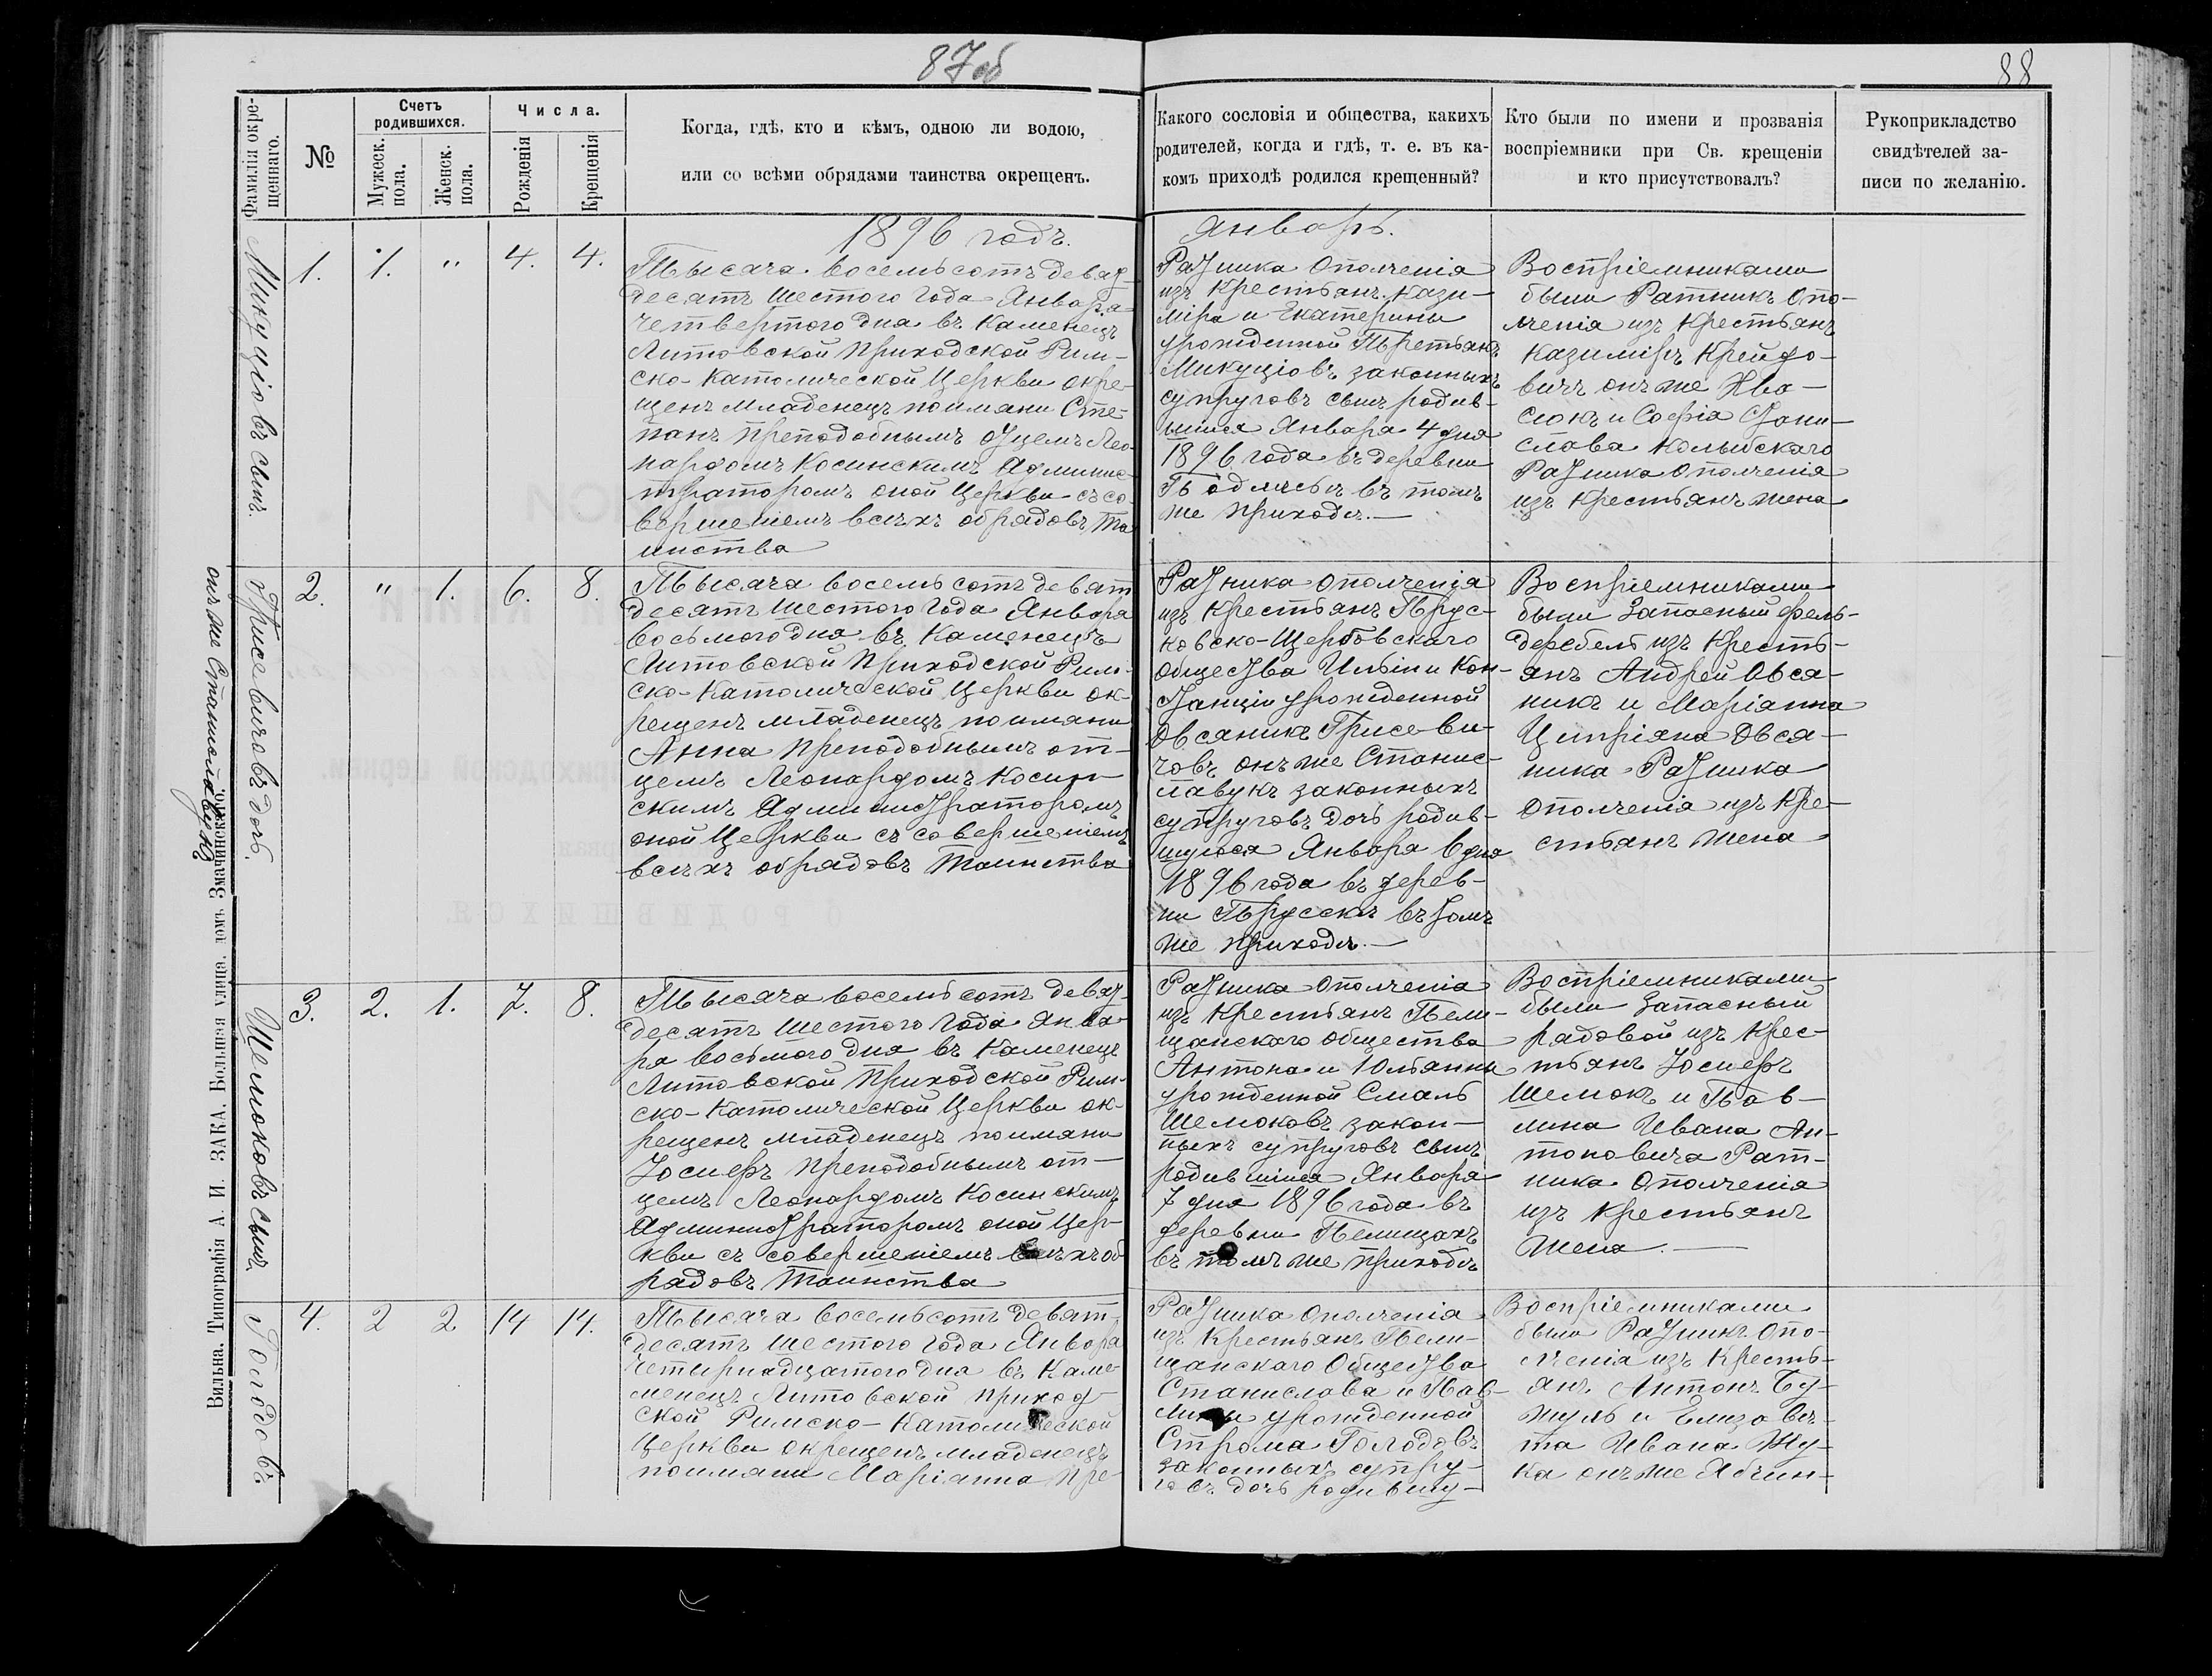 87об
88
Фамиліи окре-
щеннаго.
№
Счетъ
родившихся.
Мужеск.
пола.
Женск.
пола.
Числа.
Рожденія
Крещенія
Когда, гдѣ, кто и кѣмъ, одною ли водою,
или со всѣми обрядами таинства окрещенъ.
Какого сословія и общества, какихъ
родителей, когда и гдѣ, т. е. въ ка-
комъ приходѣ родился крещенный?
Кто были по имени и прозванія
воспріемники при Св. крещеніи
и кто присутствовалъ?
Рукоприкладство
свидѣтелей за-
писи по желанію.
1896 годъ.
Январь.
Микуціовъ сынъ.
1. 1. " 4. 4.
Тысяча восемьсотъ девят-
десятъ шестого года Января
четвертого дня въ Каменецъ
Литовской приходской Рим-
ско-Католической Церкви окре-
щенъ младенецъ поимяни Сте-
панъ преподобнымъ отцемъ Лео-
нардомъ Косинскимъ Админис-
траторомъ оной Церкви съ со-
вершеніемъ всѣхъ обрядовъ Та-
инства
Ратника ополченія
изъ крестьянъ Кази-
міра и Екатерины
урожденной
Микуціовъ законныхъ
супруговъ сынъ родив-
шійся Января 4 дня
1896 года въ деревни
въ томъ
же приходѣ.—
Воспріемниками
были Ратникъ опо-
лченія изъ крестьянъ
Казиміръ
вичъ онъ же
и Софія Стани-
слава
Ратника ополченія
изъ крестьянъ жена
Грисевичовъ дочь.
онъ же Станиславукъ
2. " 1. 6. 8.
Тысяча восемьсотъ девят
десятъ шестого года Января
восьмого дня въ Каменецъ
Литовской приходской Рим-
ско-Католической Церкви ок-
рещенъ младенецъ поимяни
Анна преподобнымъ от-
цемъ Леонардомъ Косин-
скимъ Администраторомъ
оной Церкви съ совершеніемъ
всѣхъ обрядовъ Таинства
Ратника ополченія
изъ крестьянъ Прус-
ковско-Щербовскаго
общества Ильи и Кон-
станціи урожденной
Овсяникъ Грисеви-
човъ онъ же Станис-
лавукъ законныхъ
супруговъ дочь родив-
шуюся Января 6 дня
1896 года въ дерев-
ни Прусскѣ въ томъ
же приходѣ.—
Воспріемниками
были Запасный фель-
дфебель изъ кресть-
янъ Андрей Овся-
никъ и Маріанна
Ципріяна Овся-
ника Ратника
ополченія изъ кре-
стьянъ жена
Шемоковъ сынъ.
3. 2. 1. 7. 8.
Тысяча восемьсотъ девят-
десятъ шестого года Янва-
ря восьмого дня въ Каменецъ
Литовской приходской Рим-
ско-Католической Церкви ок-
рещенъ младенецъ поимяни
Іосифъ преподобнымъ от-
цемъ Леонардомъ Косинскимъ
Администраторомъ оной Цер-
кви съ совершеніемъ всѣхъ об
рядовъ Таинства
Ратника ополченія
изъ крестьянъ Пели-
щанскаго общества
Антона и Юльянны
урожденной Смаль
Шемоковъ закон-
ныхъ супруговъ сынъ
родившійся Января
7 дня 1896 года въ
деревни Пелищахъ
въ томъ же приходѣ
Воспріемниками
были Запасный
рядовой изъ крес-
тьянъ Іосифъ
Шемокъ и Пав-
лина Ивана Ан-
тоновича Рат-
ника ополченія
изъ крестьянъ
жена.—
Голодовъ
4. 2 2 14 14.
Тысяча восемьсотъ девят-
десятъ шестого года Января
четырнадцатого дня въ Каме-
менецъ Литовской приход-
ской Римско-Католической
Церкви окрещенъ младенецъ
поимяни Маріанна пре-
Ратника ополченія
изъ крестьянъ Пели-
щанскаго общества
Станислава и Пав-
лины урожденной
Строма Голодовъ
законныхъ супру-
говъ дочь родившу-
Воспріемниками
были Ратникъ опо-
лченія изъ кресть-
янъ Антонъ Бу-
жуль и Елизаве-
та Ивана Жу-
ка онъ же
Вильна. Типографія А. И. ЗАКА, Большая улица, домъ Змачинскаго.